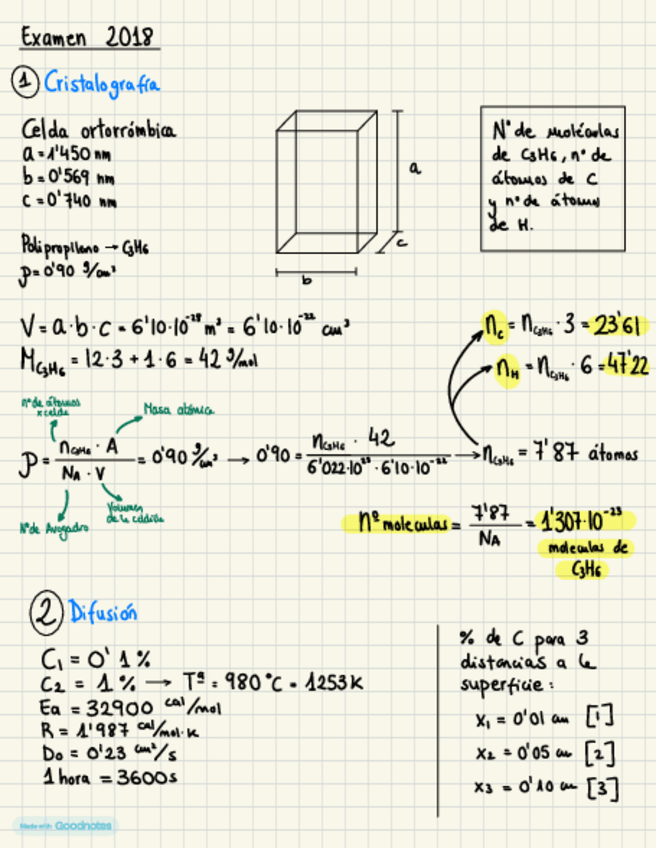 Examen 2018
1 Cristalografía
Celda ortorrómbica
a = 1'450 nm
b = 0'569 nm
c = 0'740 nm
Polipropileno → C₃H₆
ρ = 0'90 g/cm³
a
c
b
Nº de moléculas
de C₃H₆, nº de
átomos de C
y nº de átomos
de H.
V = a·b·c = 6'10·10⁻²⁸ m³ = 6'10·10⁻²² cm³
M_C₃H₆ = 12·3 + 1·6 = 42 g/mol
n_C = n_C₃H₆ · 3 = 23'61
n_H = n_C₃H₆ · 6 = 47'22
nº de átomos
x celda
Masa atómica
ρ = (n_C₃H₆ · A) / (N_A · V) = 0'90 g/cm³ → 0'90 = (n_C₃H₆ · 42) / (6'022·10²³ · 6'10·10⁻²²) → n_C₃H₆ = 7'87 átomos
Nº de Avogadro
Volumen
de la celdilla
nº moleculas = 7'87 / N_A = 1'307·10⁻²³
moleculas de
C₃H₆
2 Difusión
C₁ = 0'1 %
C₂ = 1 % → Tª = 980 °C = 1253 K
Ea = 32900 cal/mol
R = 1'987 cal/mol·K
D₀ = 0'23 cm²/s
1 hora = 3600 s
% de C para 3
distancias a la
superficie:
x₁ = 0'01 cm [1]
x₂ = 0'05 cm [2]
x₃ = 0'10 cm [3]
Made with Goodnotes